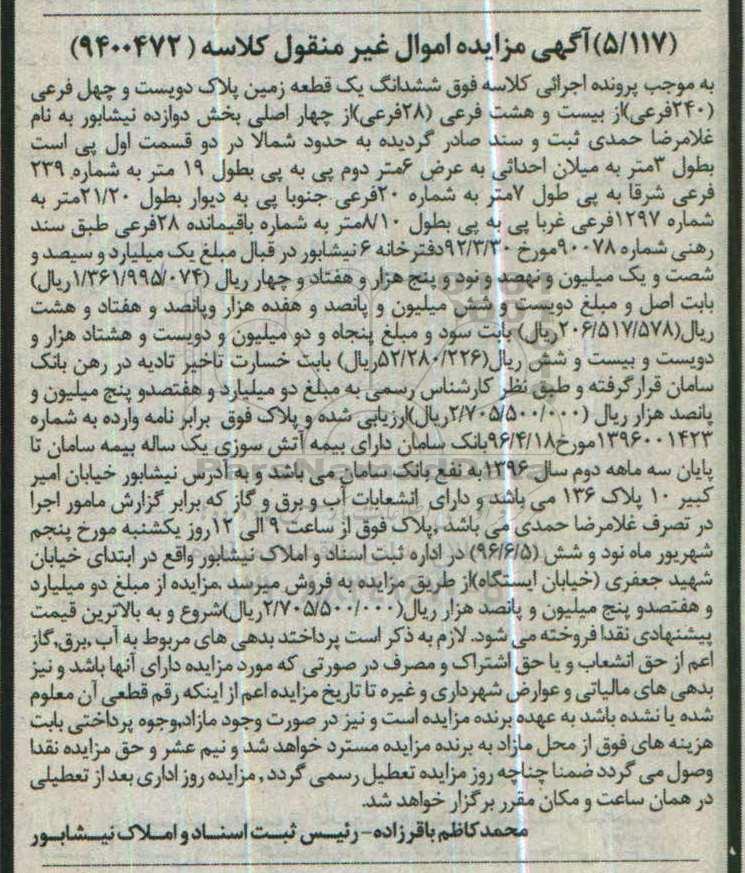 (۵/۱۱۷)آگهی مزایده اموال غیر منقول کلاسه (۹۴۰۰۴۷۲)
به موجب پرونده اجرائی کلاسه فوق ششدانگ یک قطعه زمین پلاک دویست و چهل فرعی
(۲۴۰فرعی)از بیست و هشت فرعی (۲۸فرعی)از چهار اصلی بخش دوازده نیشابور به نام
غلامرضا حمدی ثبت و سند صادر گردیده به حدود شمالا در دو قسمت اول پی است
بطول ۳متر به میلان احداثی به عرض ۶متر دوم پی به پی بطول ۱۹ متر به شماره ۲۳۹
فرعی شرقا به پی طول ۷متر به شماره ۲۰فرعی جنوبا پی به دیوار بطول ۲۱/۲۰متر به
شماره ۱۲۹۷فرعی غربا پی به پی بطول ۸/۱۰متر به شماره باقیمانده ۲۸فرعی طبق سند
رهنی شماره ۹۰۰۷۸مورخ ۹۲/۳/۳۰دفترخانه ۶ نیشابور در قبال مبلغ یک میلیارد و سیصد و
شصت و یک میلیون و نهصد و نود و پنج هزار و هفتاد و چهار ریال (۱/۳۶۱/۹۹۵/۰۷۴ریال)
بابت اصل و مبلغ دویست و شش میلیون و پانصد و هفده هزار وپانصد و هفتاد و هشت
ریال(۲۰۶/۵۱۷/۵۷۸ریال) بابت سود و مبلغ پنجاه و دو میلیون و دویست و هشتاد هزار و
دویست و بیست و شش ریال(۵۲/۲۸۰/۲۲۶ریال) بابت خسارت تاخیر تادیه در رهن بانک
سامان قرارگرفته و طبق نظر کارشناس رسمی به مبلغ دو میلیارد و هفتصدو پنج میلیون و
پانصد هزار ریال (۲/۷۰۵/۵۰۰/۰۰۰ریال)ارزیابی شده و پلاک فوق برابر نامه وارده به شماره
۱۳۹۶۰۰۱۴۲۳مورخ۹۶/۴/۱۸بانک سامان دارای بیمه آتش سوزی یک ساله بیمه سامان تا
پایان سه ماهه دوم سال ۱۳۹۶به نفع بانک سامان می باشد و به آدرس نیشابور خیابان امیر
کبیر ۱۰ پلاک ۱۳۶ می باشد و دارای انشعابات آب و برق و گاز که برابر گزارش مامور اجرا
در تصرف غلامرضا حمدی می باشد ,پلاک فوق از ساعت ۹ الی ۱۲روز یکشنبه مورخ پنجم
شهریور ماه نود و شش (۹۶/۶/۵) در اداره ثبت اسناد و املاک نیشابور واقع در ابتدای خیابان
شهید جعفری (خیابان ایستگاه)از طریق مزایده به فروش میرسد .مزایده از مبلغ دو میلیارد
و هفتصدو پنج میلیون و پانصد هزار ریال(۲/۷۰۵/۵۰۰/۰۰۰ریال)شروع و به بالاترین قیمت
پیشنهادی نقدا فروخته می شود. لازم به ذکر است پرداختد بدهی های مربوط به آب ,برق,گاز
اعم از حق انشعاب و یا حق اشتراک و مصرف در صورتی که مورد مزایده دارای آنها باشد و نیز
بدهی های مالیاتی و عوارض شهرداری و غیره تا تاریخ مزایده اعم از اینکه رقم قطعی آن معلوم
شده یا نشده باشد به عهده برنده مزایده است و نیز در صورت وجود مازاد,وجوه پرداختی بابت
هزینه های فوق از محل مازاد به برنده مزایده مسترد خواهد شد و نیم عشر و حق مزایده نقدا
وصول می گردد ضمنا چناچه روز مزایده تعطیل رسمی گردد , مزایده روز اداری بعد از تعطیلی
در همان ساعت و مکان مقرر برگزار خواهد شد.
محمدکاظم باقرزاده- رئیس ثبت اسناد و املاک نیشابور